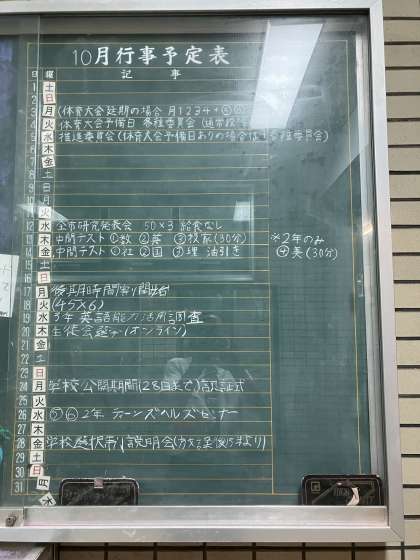 10月行事予定表
日 曜 記 事
1 土
2 日
3 月 (体育大会延期の場合 月1234+⑤⑥
4 火 体育大会予備日 各種委員会
5 水 推進委員会(体育大会予備日ありの場合は 各種委員会)
6 木
7 金
8 土
9 日
10 月
11 火
12 水 全市研究発表会 50×3 給食なし
13 木 中間テスト ①数 ②英 ③技家(30分) ※2年のみ
14 金 中間テスト ①社 ②国 ③理 油引き ④美(30分)
15 土
16 日
17 月 後期時間割り開始
18 火 (45×6)
19 水 3年 英語能力活用調査
20 木 生徒会選挙(オンライン)
21 金
22 土
23 日
24 月 学校公開期間(28日まで) 認証式
25 火
26 水 ⑤⑥2年 ティーンズヘルスセミナー
27 木
28 金 学校選択希 説明会(放課後15:より)
29 土
30 日
31 月
木